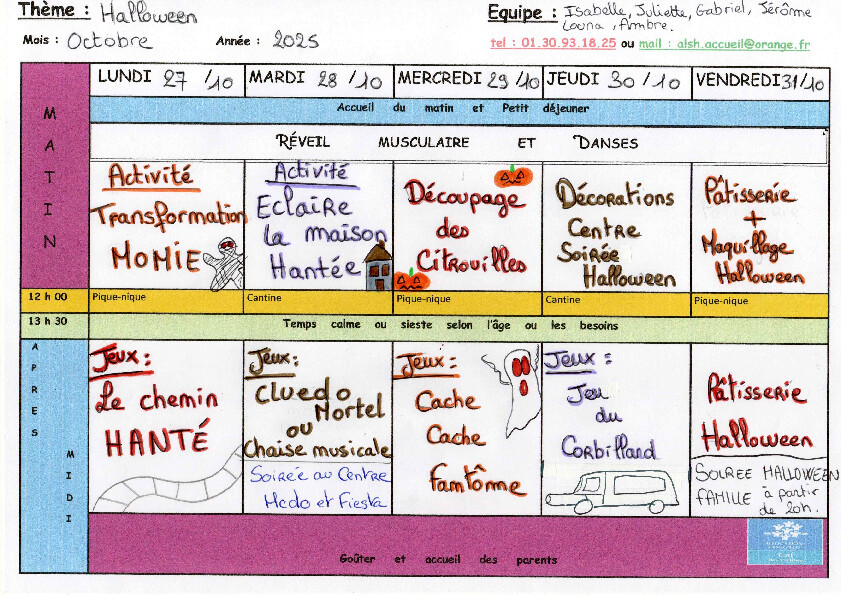 Thème : Halloween
Equipe : Isabelle, Juliette, Gabriel, Jérôme
Louna, Ambre.
Mois : Octobre Année : 2025
tel : 01.30.93.18.25 ou mail : alsh.accueil@orange.fr
MATIN
LUNDI 27/10
MARDI 28/10
MERCREDI 29/10
JEUDI 30/10
VENDREDI 31/10
Accueil du matin et Petit déjeuner
RÉVEIL MUSCULAIRE ET DANSES
Activité
Transformation
MOMIE
Activité
Eclaire
la maison
Hantée
Découpage
des
Citrouilles
Décorations
Centre
Soirée
Halloween
Pâtisserie
+
Maquillage
Halloween
12 h 00
Pique-nique
Cantine
Pique-nique
Cantine
Pique-nique
13 h 30
Temps calme ou sieste selon l'âge ou les besoins
APRES
MIDI
Jeux :
Le chemin
HANTÉ
Jeux :
Cluedo
Mortel
ou
Chaise musicale
Soirée au Centre
Mcdo et Fiesta
Jeux :
Cache
Cache
fantôme
Jeux :
Jeu
du
Corbillard
Pâtisserie
Halloween
SOIREE HALLOWEEN
FAMILLE à partir
de 20h.
Goûter et accueil des parents